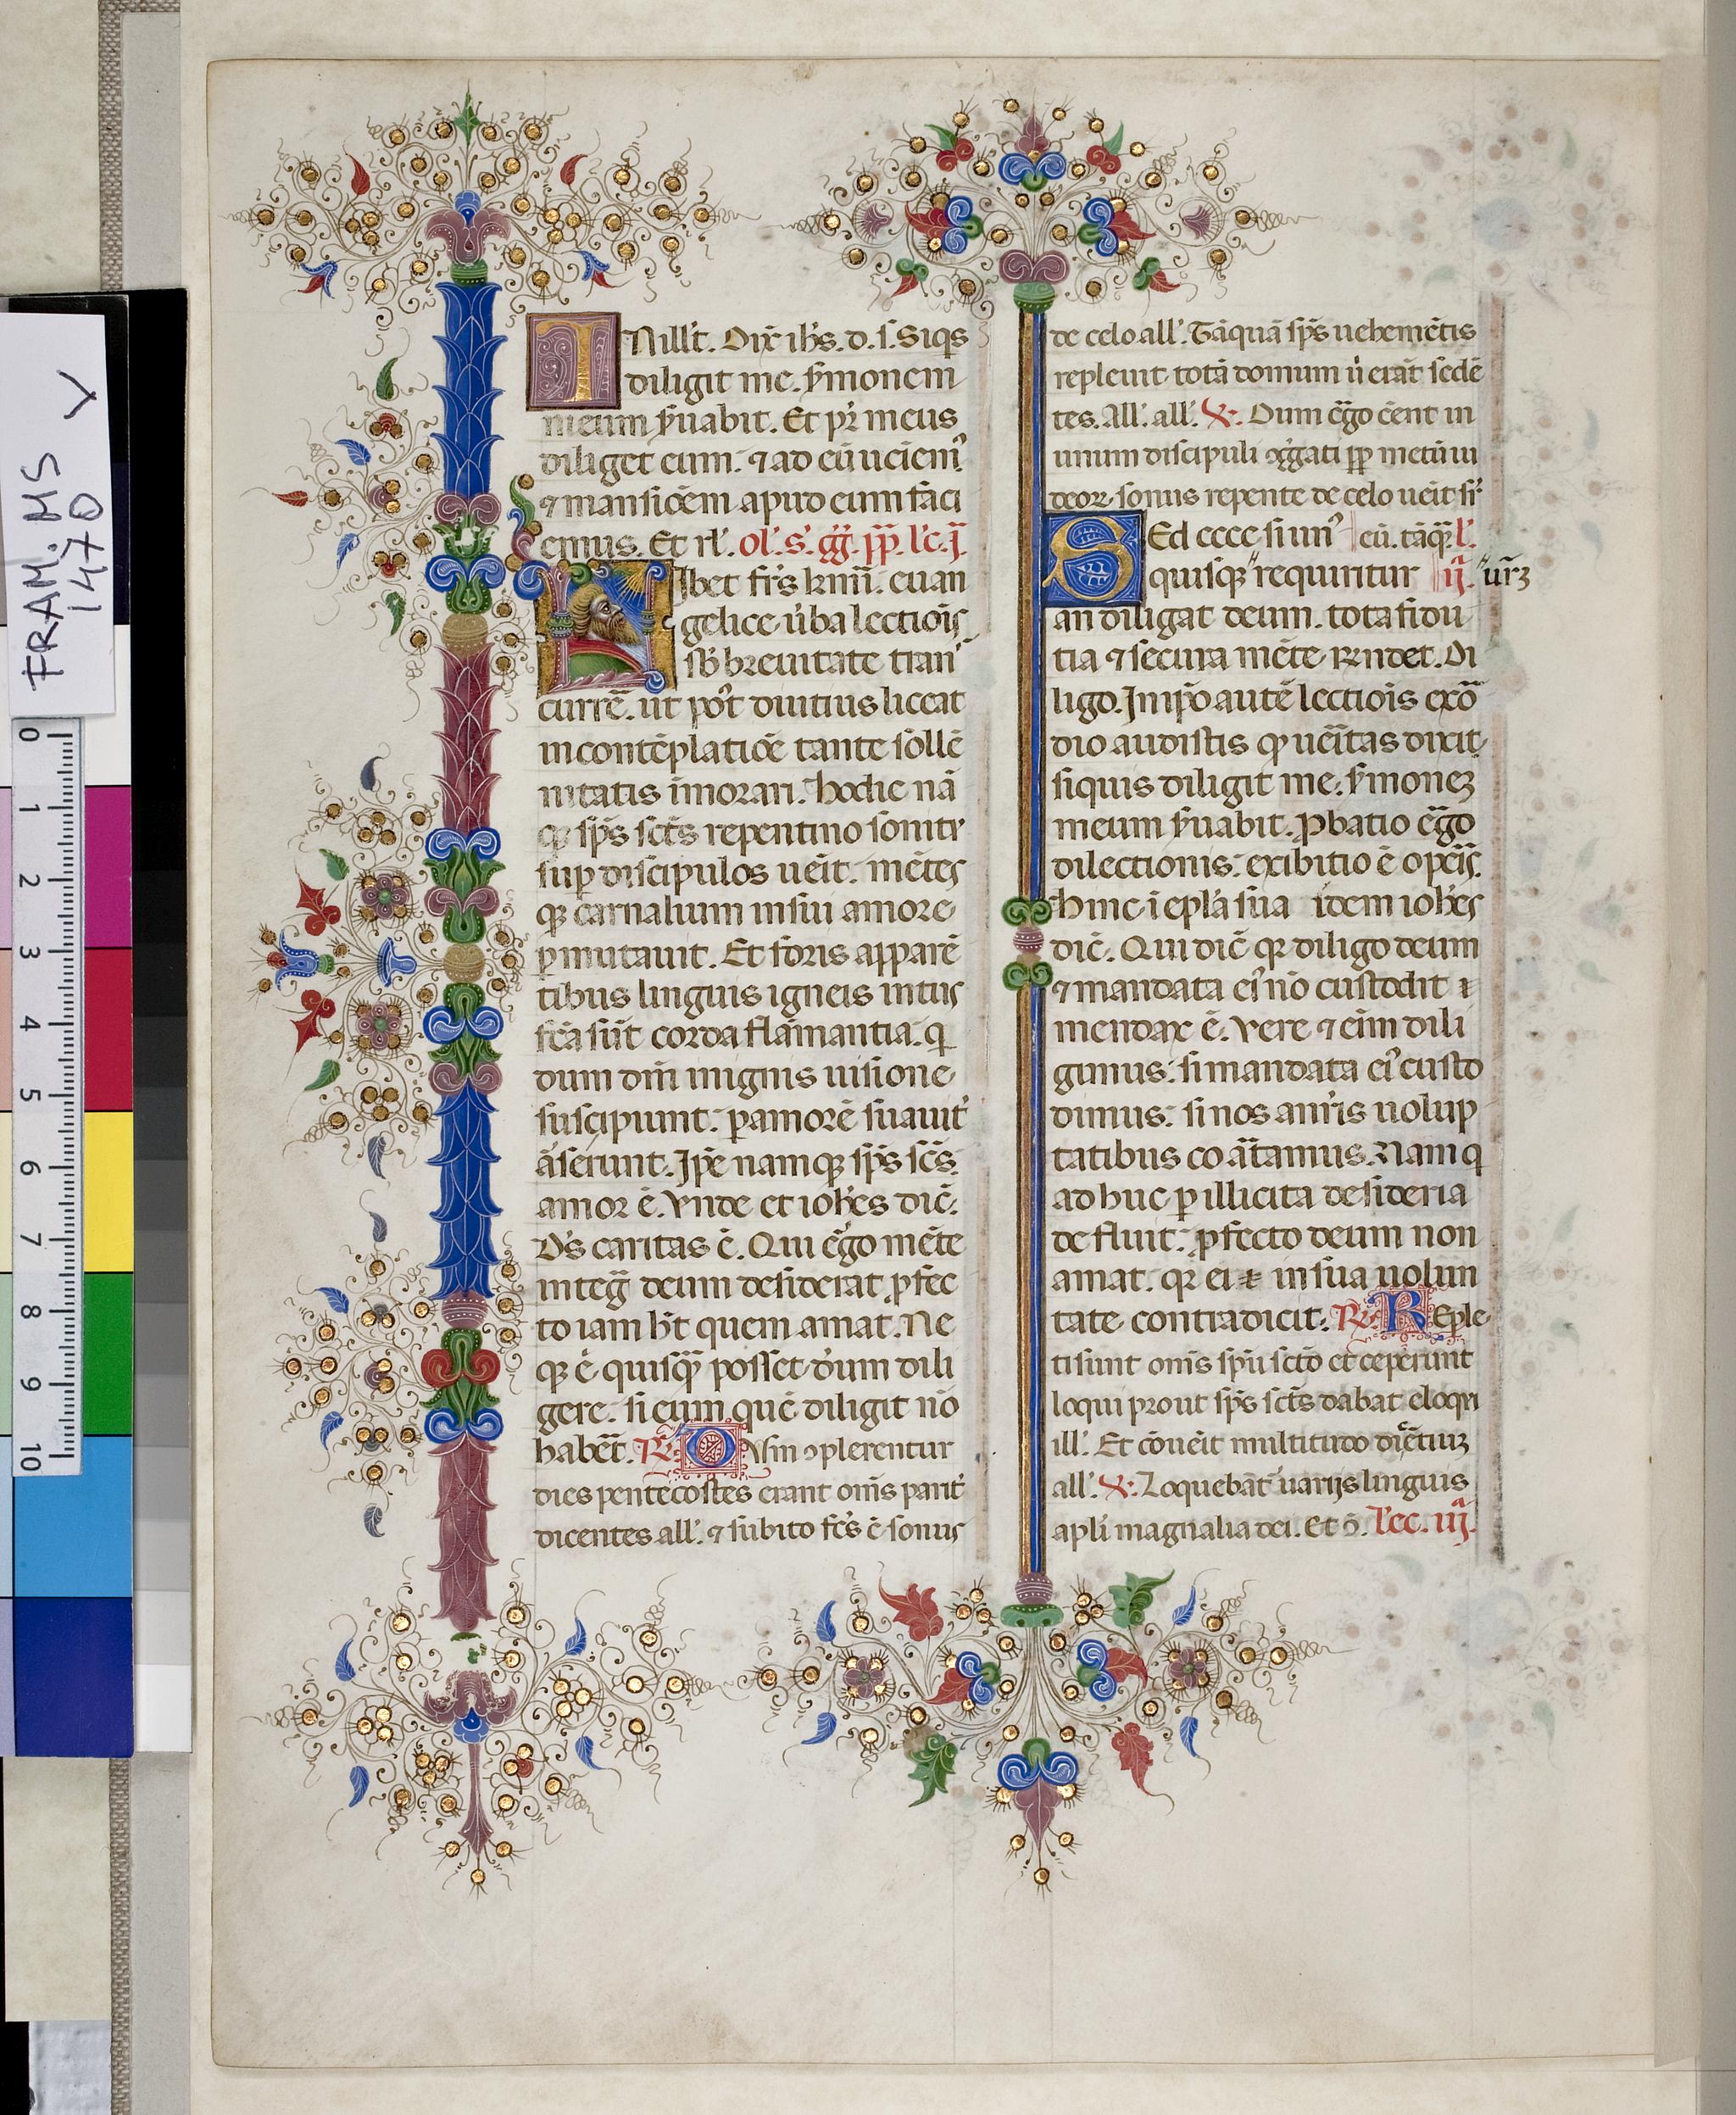 FRAM. MS
1470
V
0
1
2
3
4
5
6
7
8
9
10
IN ill't. Dix̄ ih̄s. d. s. Siq̄s
diligit me. s̄monem
meum s̄uabit. Et pr̄ meus
diliget eum. ⁊ ad eū ueiem⁹
⁊ mansiōem apud eum faci
emus. Et rl'. ol'. s. gg̃. pp̄. l'c. j̄
Libet fr̄s kmī. euan
gelice ūba lectiōis
sb̄ breuitate tran
currē. ut pōt diutius liceat
in contēplatiōe tante sollē
nitatis īmorari. hodie nā
qꝫ sp̄s sct̄s repentino sonitu
suꝑ discipulos ueīt. mētes
qꝫ carnalium in sui amore
ꝑmutauit. Et foris apparē
tibus linguis igneis intus
fcā sūt corda flāmantia. q
dum dm̄ in ignis uisione
suscipiunt. ꝑ amorē suauit'
āserunt. Ip̄e namqꝫ sp̄s sc̄s.
amor ē. Vnde et ioh̄es dic̄.
Ds̄ caritas ē. Qui ēgo mēte
integ̃ deum desiderat ꝓfec
to iam h̄t quem amat. Ne
qꝫ ē quisqꝫ posset dūm dili
gere. si eum quē diligit nō
habēt. R̄. Dum ꝯplerentur
dies pentecostes erant om̄s parit'
dicentes all'. ⁊ subito fc̄s ē sonus
de celo all'. Tāquā sp̄s uehemētis
repleuit totā domum ū erāt sedē
tes. All'. all'. V. Dum ēgo ēent in
unum discipuli ꝯg̃gati ꝓp̄ metū iu
deoꝝ. sonus repente de celo ueīt sr̄
Sed ecce si un⁹ eū. tāqꝫ. l'.
quisqꝫ requiritur ij. ur̄ꝫ
an diligat deum. tota fidu
tia ⁊ secura mēte rn̄det. Di
ligo. In ip̄o autē lectiōis exō
dio audistis qꝫ ueītas dixit,
siquis diligit me. s̄moneꝫ
meum s̄uabit. Ꝓbatio ēgo
dilectionis. exibitio ē opeīs.
hinc ī epl̄a sua idem ioh̄es
dic̄. Qui dic̄ qꝫ diligo deum
⁊ mandata ei⁹ nō custodit
mendax ē. Vere ⁊ eīm dili
gimus. si mandata ei⁹ custo
dimus. si nos an̄ris uolup
tatibus coāt̄amus. Nam q
ad huc ꝑ illicita desideria
de fluit. ꝓfecto deum non
amat. qꝫ ei in sua uolun
tate contradicit. R̄. Reple
ti sunt om̄s spū scto et ceperunt
loqui prout sp̄s sct̄s dabat eloqui
ill'. Et cōueīt multitudo dicētiuꝫ
all'. V. Loquebāt' uarijs linguis
apl'i magnalia dei. Et ꝯ. l'ec. iij.